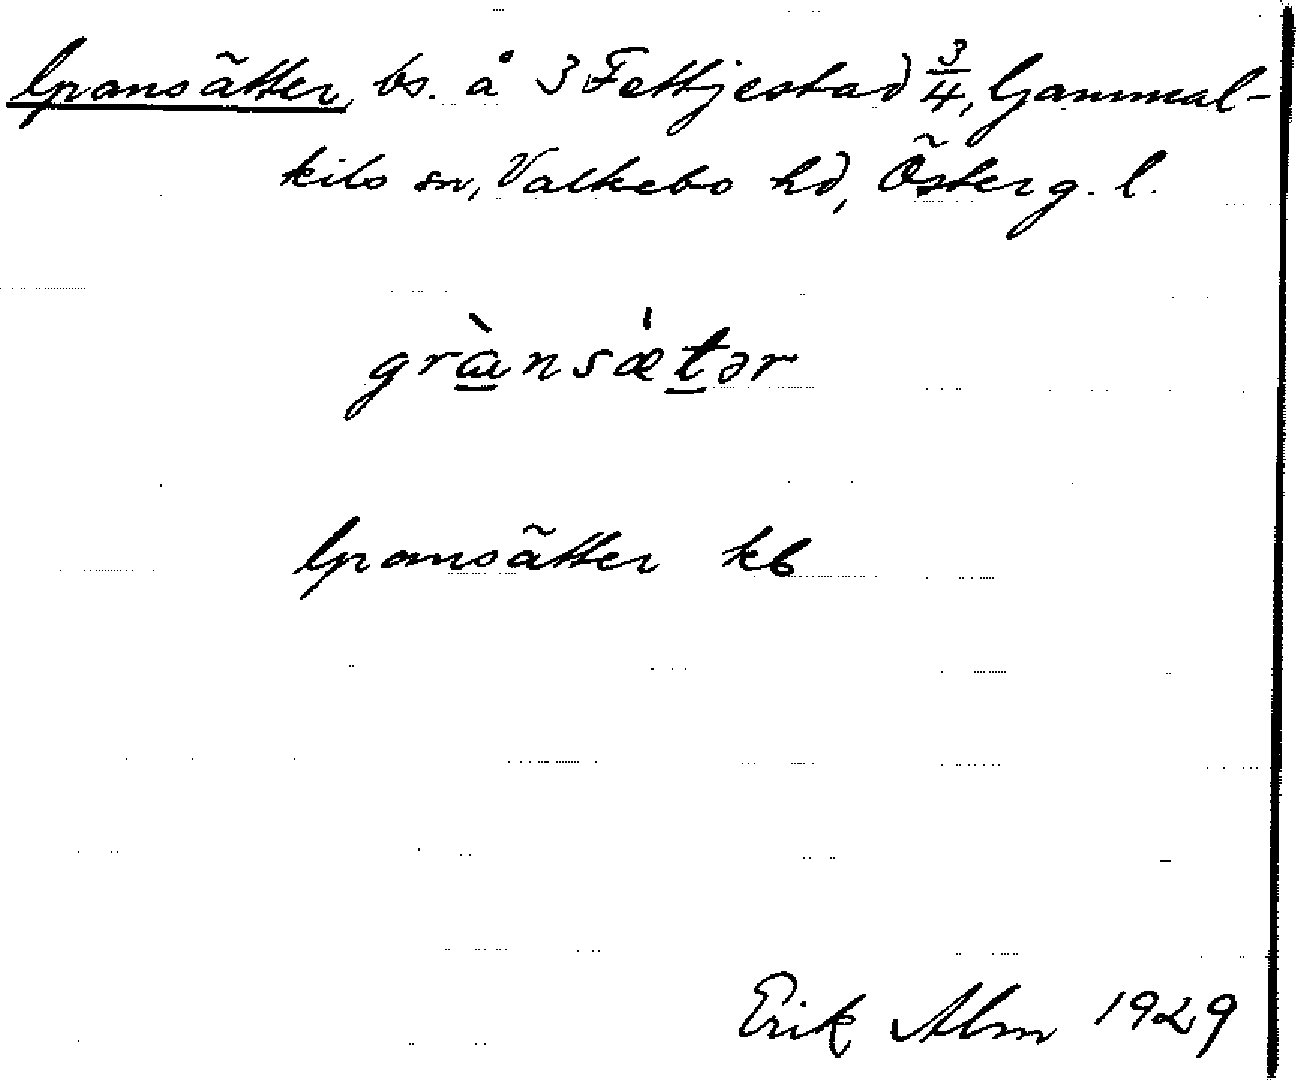 Gransätter, bs. å 3 Fettjestad 3/4, Gammal-
kils sn, Valkebo hd, Österg. l.
grànsætər
Gransätter kb
Erik Alm 1929